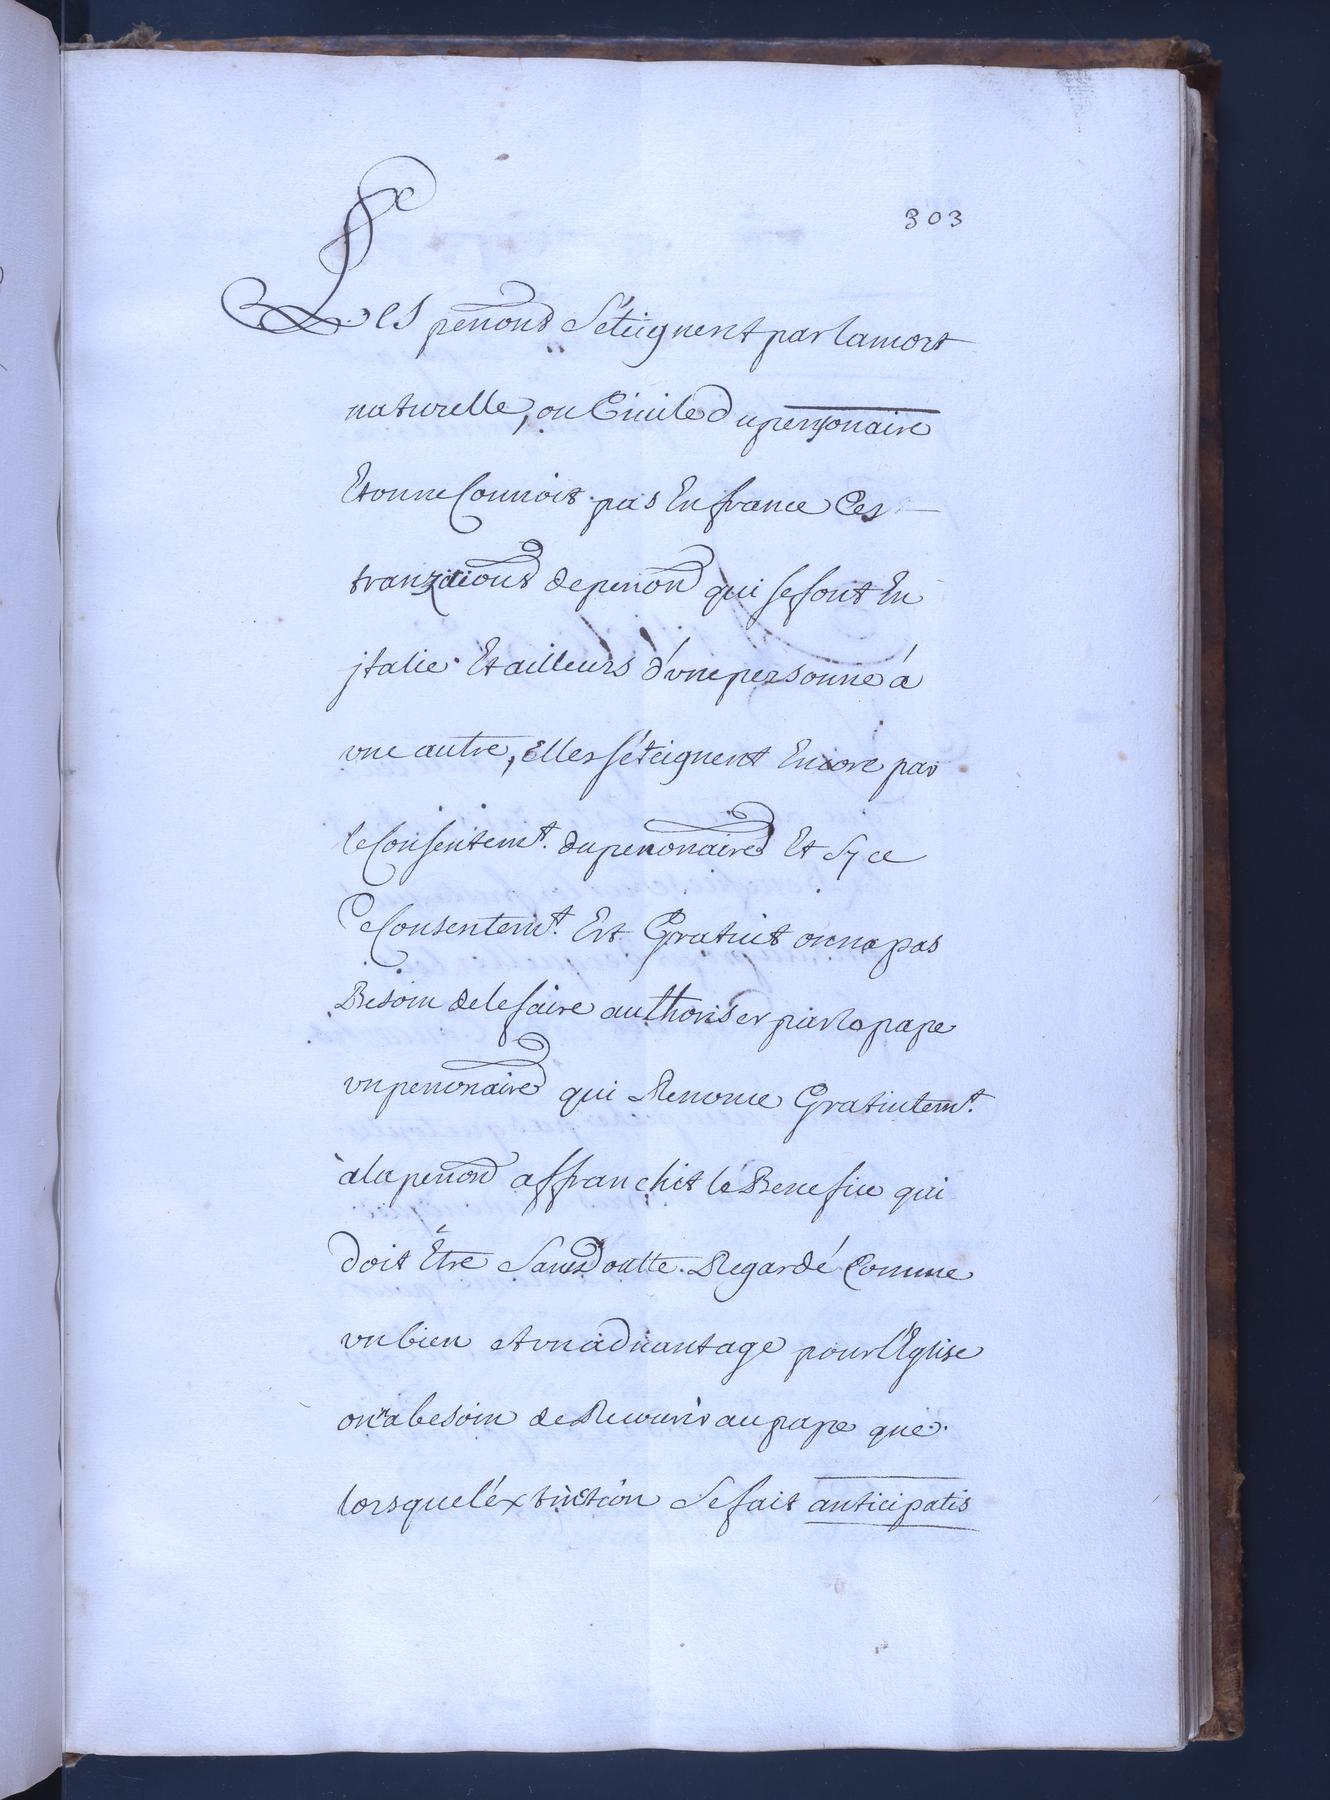 303
Les penons S'éteignent par la mort
naturelle, ou Civile du pensonaire
Et on ne Connoit pas En france Ces
tranzactions de penon qui se font En
jtalie Et ailleurs d'une personne á
vne autre, Elles s'éteignent Encore par
le Consentemt. du penonaire Et Sy ce
Ce Consentemt. Est Gratuit on na pas
Besoin de le faire authoriser par le pape
vn penonaire qui Renonce Gratuitemt.
à la penon affranchit le Benefice qui
doit Étre Sans doutte Regardé Comme
vn bien et vn aduantage pour l'Eglise
on n'a besoin de Recourir au pape que
lorsque l'éxtinction Se fait anticipatis